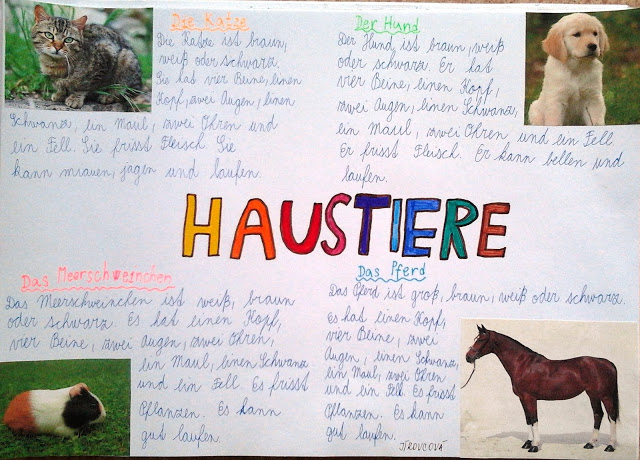 Die Katze
Die Katze ist braun,
weiß oder schwarz.
Sie hat vier Beine, einen
Kopf, zwei Augen, einen
Schwanz, ein Maul, zwei Ohren und
ein Fell. Sie frisst Fleisch. Sie
kann miauen, jagen und laufen.
Der Hund
Der Hund ist braun, weiß
oder schwarz. Er hat
vier Beine, einen Kopf,
zwei Augen, einen Schwanz,
ein Maul, zwei Ohren und ein Fell.
Er frisst Fleisch. Er kann bellen und
laufen.
HAUSTIERE
Das Meerschweinchen
Das Meerschweinchen ist weiß, braun
oder schwarz. Es hat einen Kopf,
vier Beine, zwei Augen, zwei Ohren,
ein Maul, einen Schwanz
und ein Fell. Es frisst
Pflanzen. Es kann
gut laufen.
Das Pferd
Das Pferd ist groß, braun, weiß oder schwarz.
Es hat einen Kopf,
vier Beine, zwei
Augen, einen Schwanz,
ein Maul, zwei Ohren
und ein Fell. Es frisst
Pflanzen. Es kann
gut laufen.
JÍROVCOVÁ